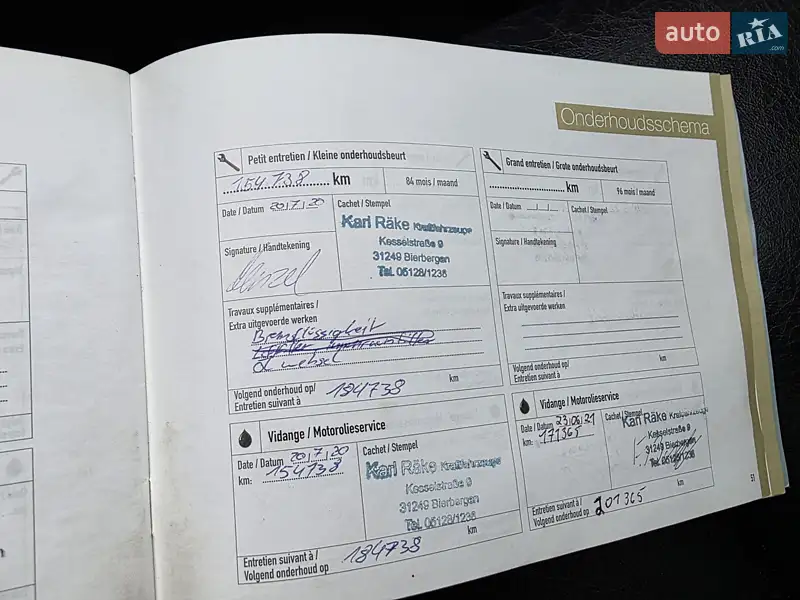 auto RIA .com
Onderhoudsschema
Petit entretien / Kleine onderhoudsbeurt
154738 km
84 mois / maand
Date / Datum 20,7,20
Cachet / Stempel
Karl Räke Kraftfahrzeuge
Kesselstraße 9
31249 Bierbergen
Tel. 05128/1236
Signature / Handtekening
Travaux supplémentaires /
Extra uitgevoerde werken
Bremsflüssigkeit
wechsel
Volgend onderhoud op/
Entretien suivant à
184738 km
Grand entretien / Grote onderhoudsbeurt
km
96 mois / maand
Date / Datum
Cachet / Stempel
Signature / Handtekening
Travaux supplémentaires /
Extra uitgevoerde werken
Volgend onderhoud op/
Entretien suivant à
km
Vidange / Motorolieservice
Date / Datum 20,7,20
km: 154738
Cachet / Stempel
Karl Räke Kraftfahrzeuge
Kesselstraße 9
31249 Bierbergen
Tel. 05128/1236
Entretien suivant à /
Volgend onderhoud op
184738 km
Vidange / Motorolieservice
Date / Datum 23,06,21
km: 171365
Cachet / Stempel
Karl Räke Kraftfahrzeuge
Kesselstraße 9
31249 Bierbergen
Tel. 05128/1236
Entretien suivant à /
Volgend onderhoud op
201365 km
51